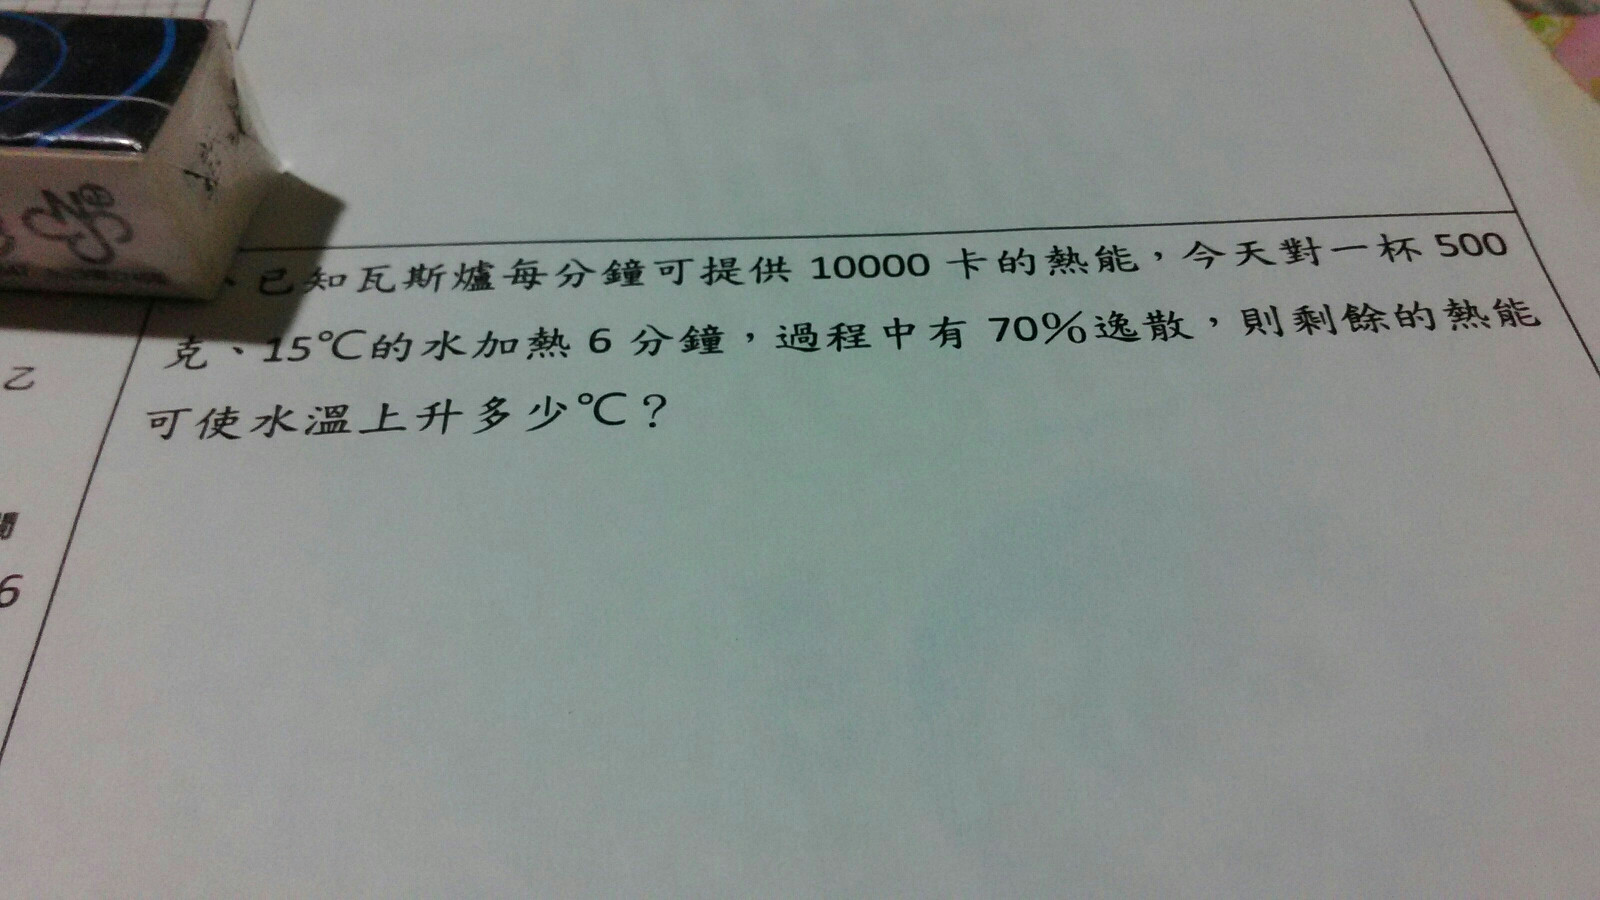 、已知瓦斯爐每分鐘可提供 10000 卡的熱能，今天對一杯 500
克、15℃的水加熱 6 分鐘，過程中有 70%逸散，則剩餘的熱能
可使水溫上升多少℃？
乙
6